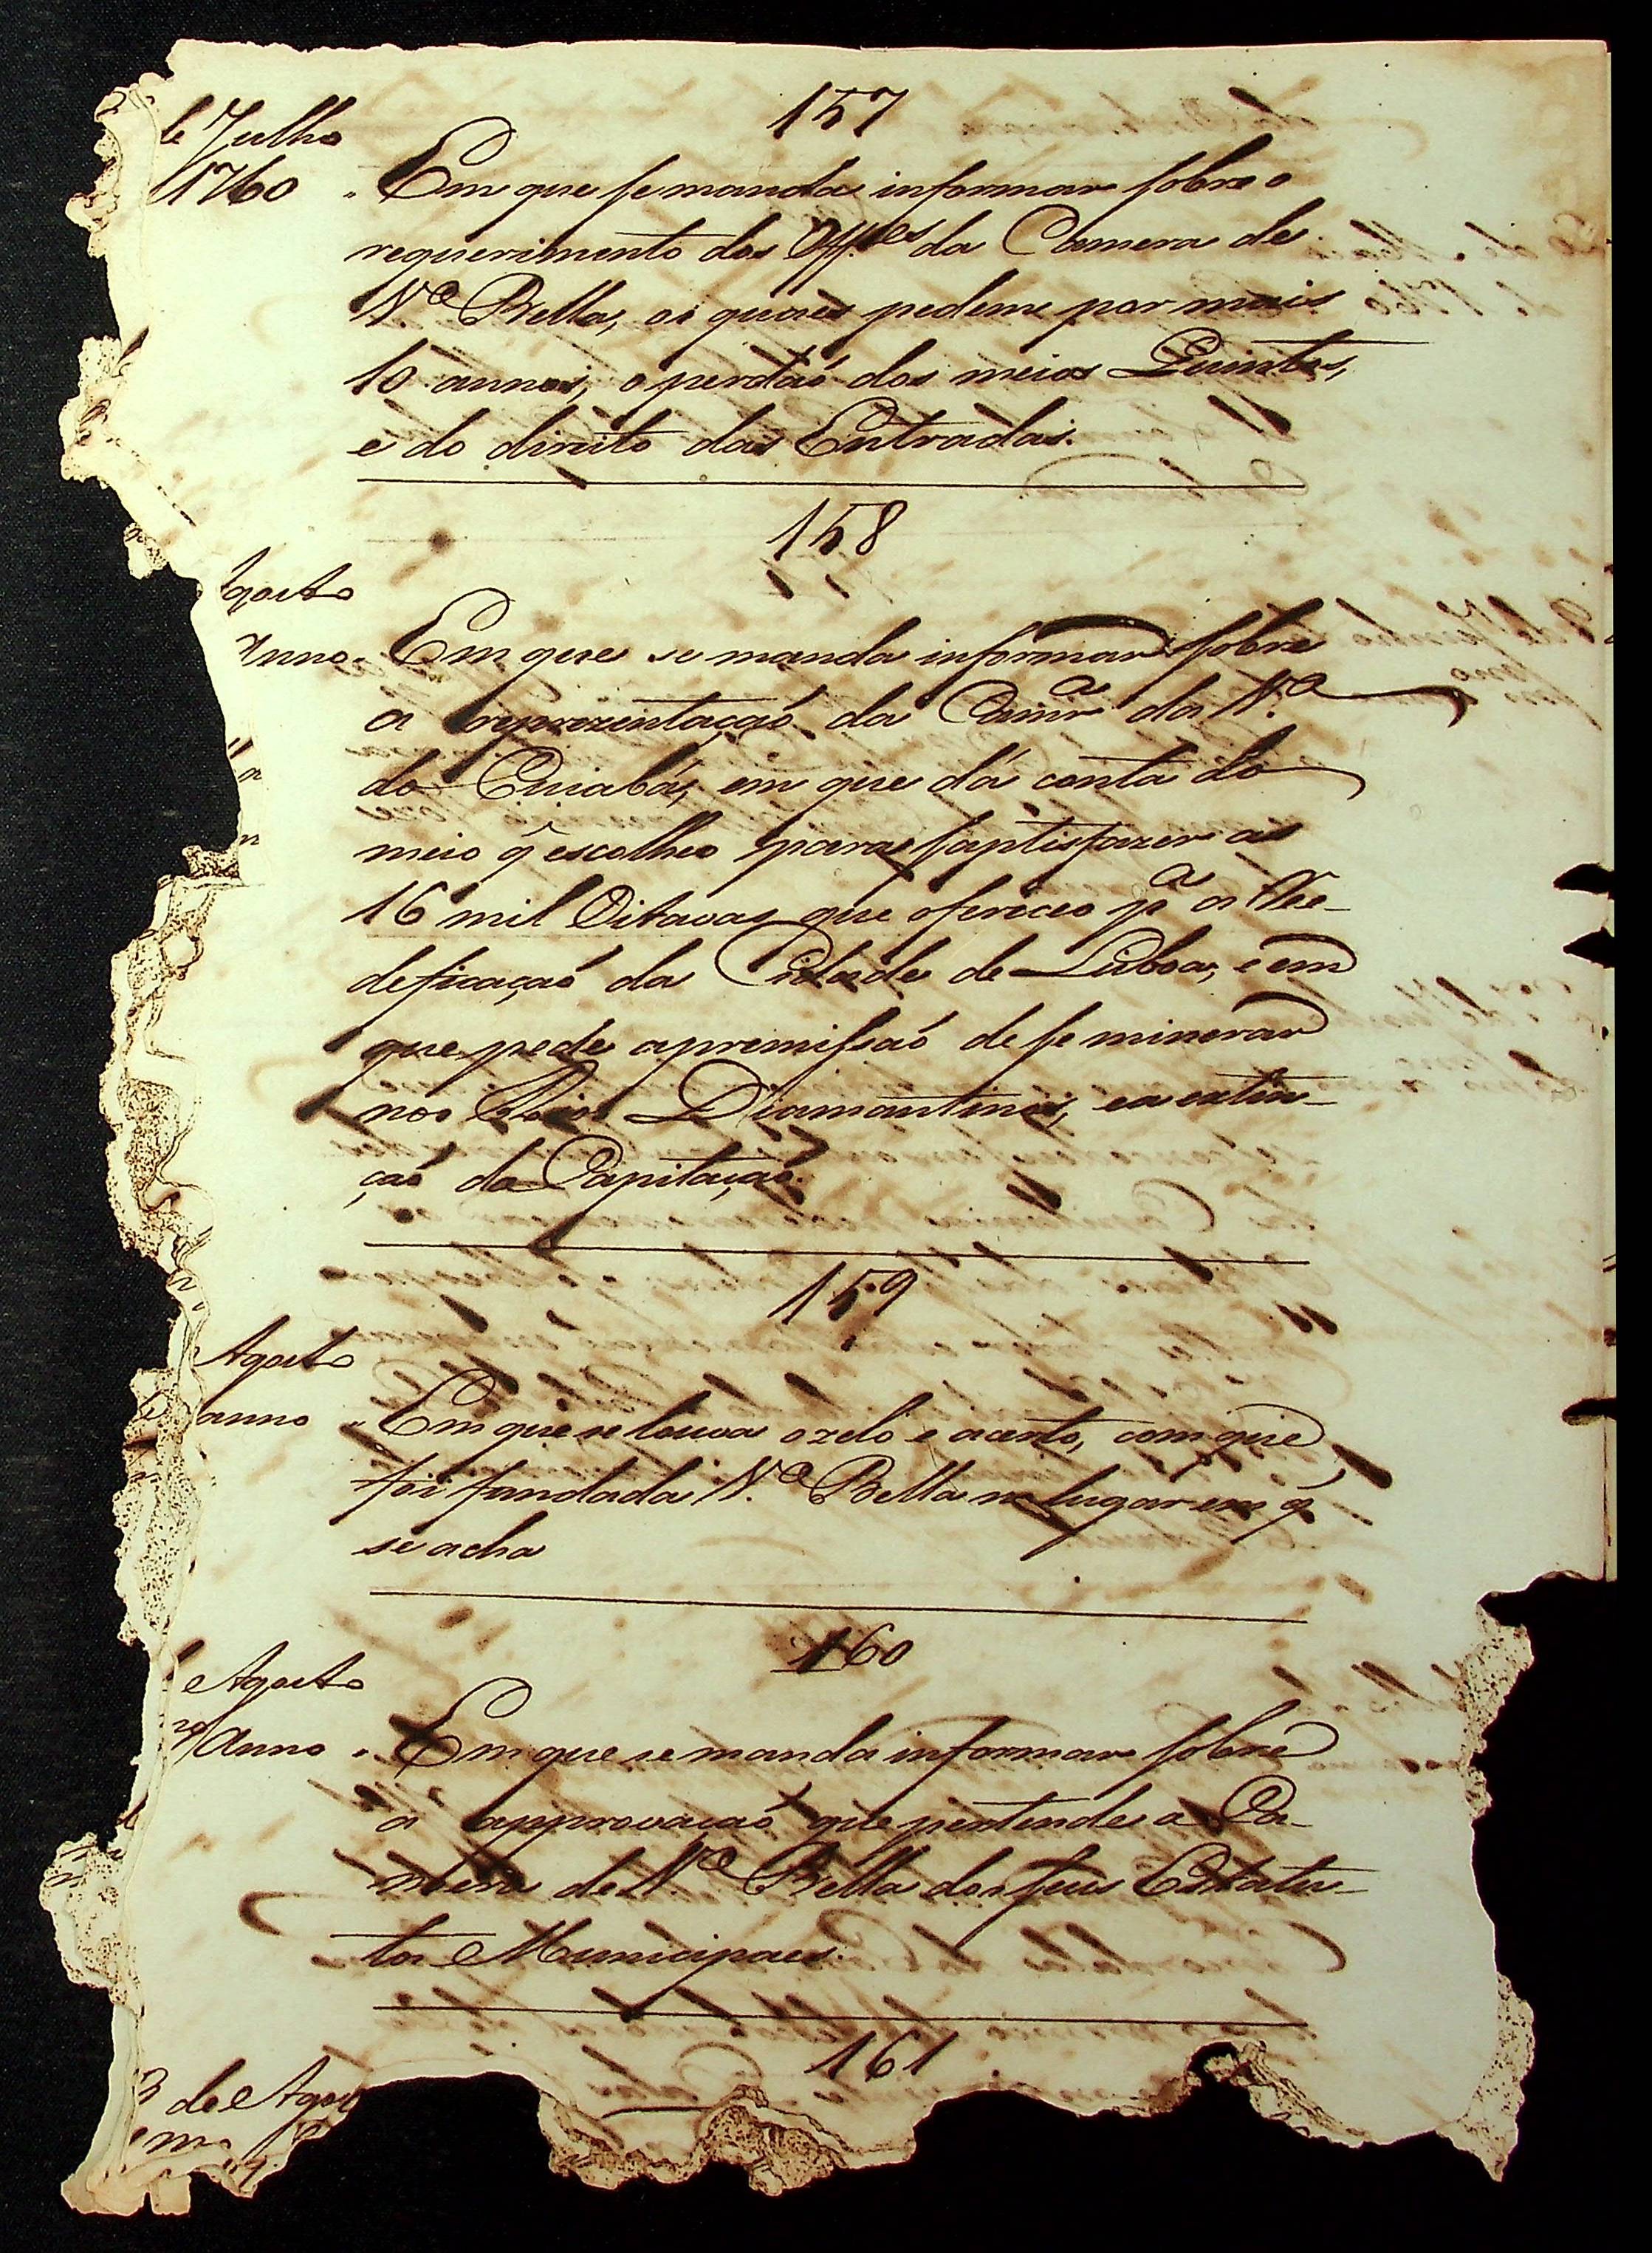 157
de Julho
1760 " Em que se manda informar sobre o
requerimento dos Off.es da Camera de
V.a Bella, os quaes pedem por mais
10 annos, o perdaõ dos meios Quintos,
e do direito das Entradas.
158
Agosto
Anno " Em que se manda informar sobre
a reprezentaçaõ da Camr.a da V.a
do Cuiabá, em que dá conta do
meio q̃ escolheo para saptisfazer as
16 mil Oitavas que ofereceo p.a a Ree-
deficaçaõ da Cidade de Lisboa, e em
que pede a premissaõ de se minerar
nos Rios Diamantinos, e a extin-
çaõ da Capitaçaõ.
159
Agosto
anno " Em que se louva o zelo e acerto, com que
foi fundada V.a Bella no lugar em q̃
se acha
160
Agosto
Anno " Em que se manda informar sobre
a approvaçaõ que pertende a Ca-
mera de V.a Bella dos seus Estatu-
tos Municipaes.
161
3 de Agos